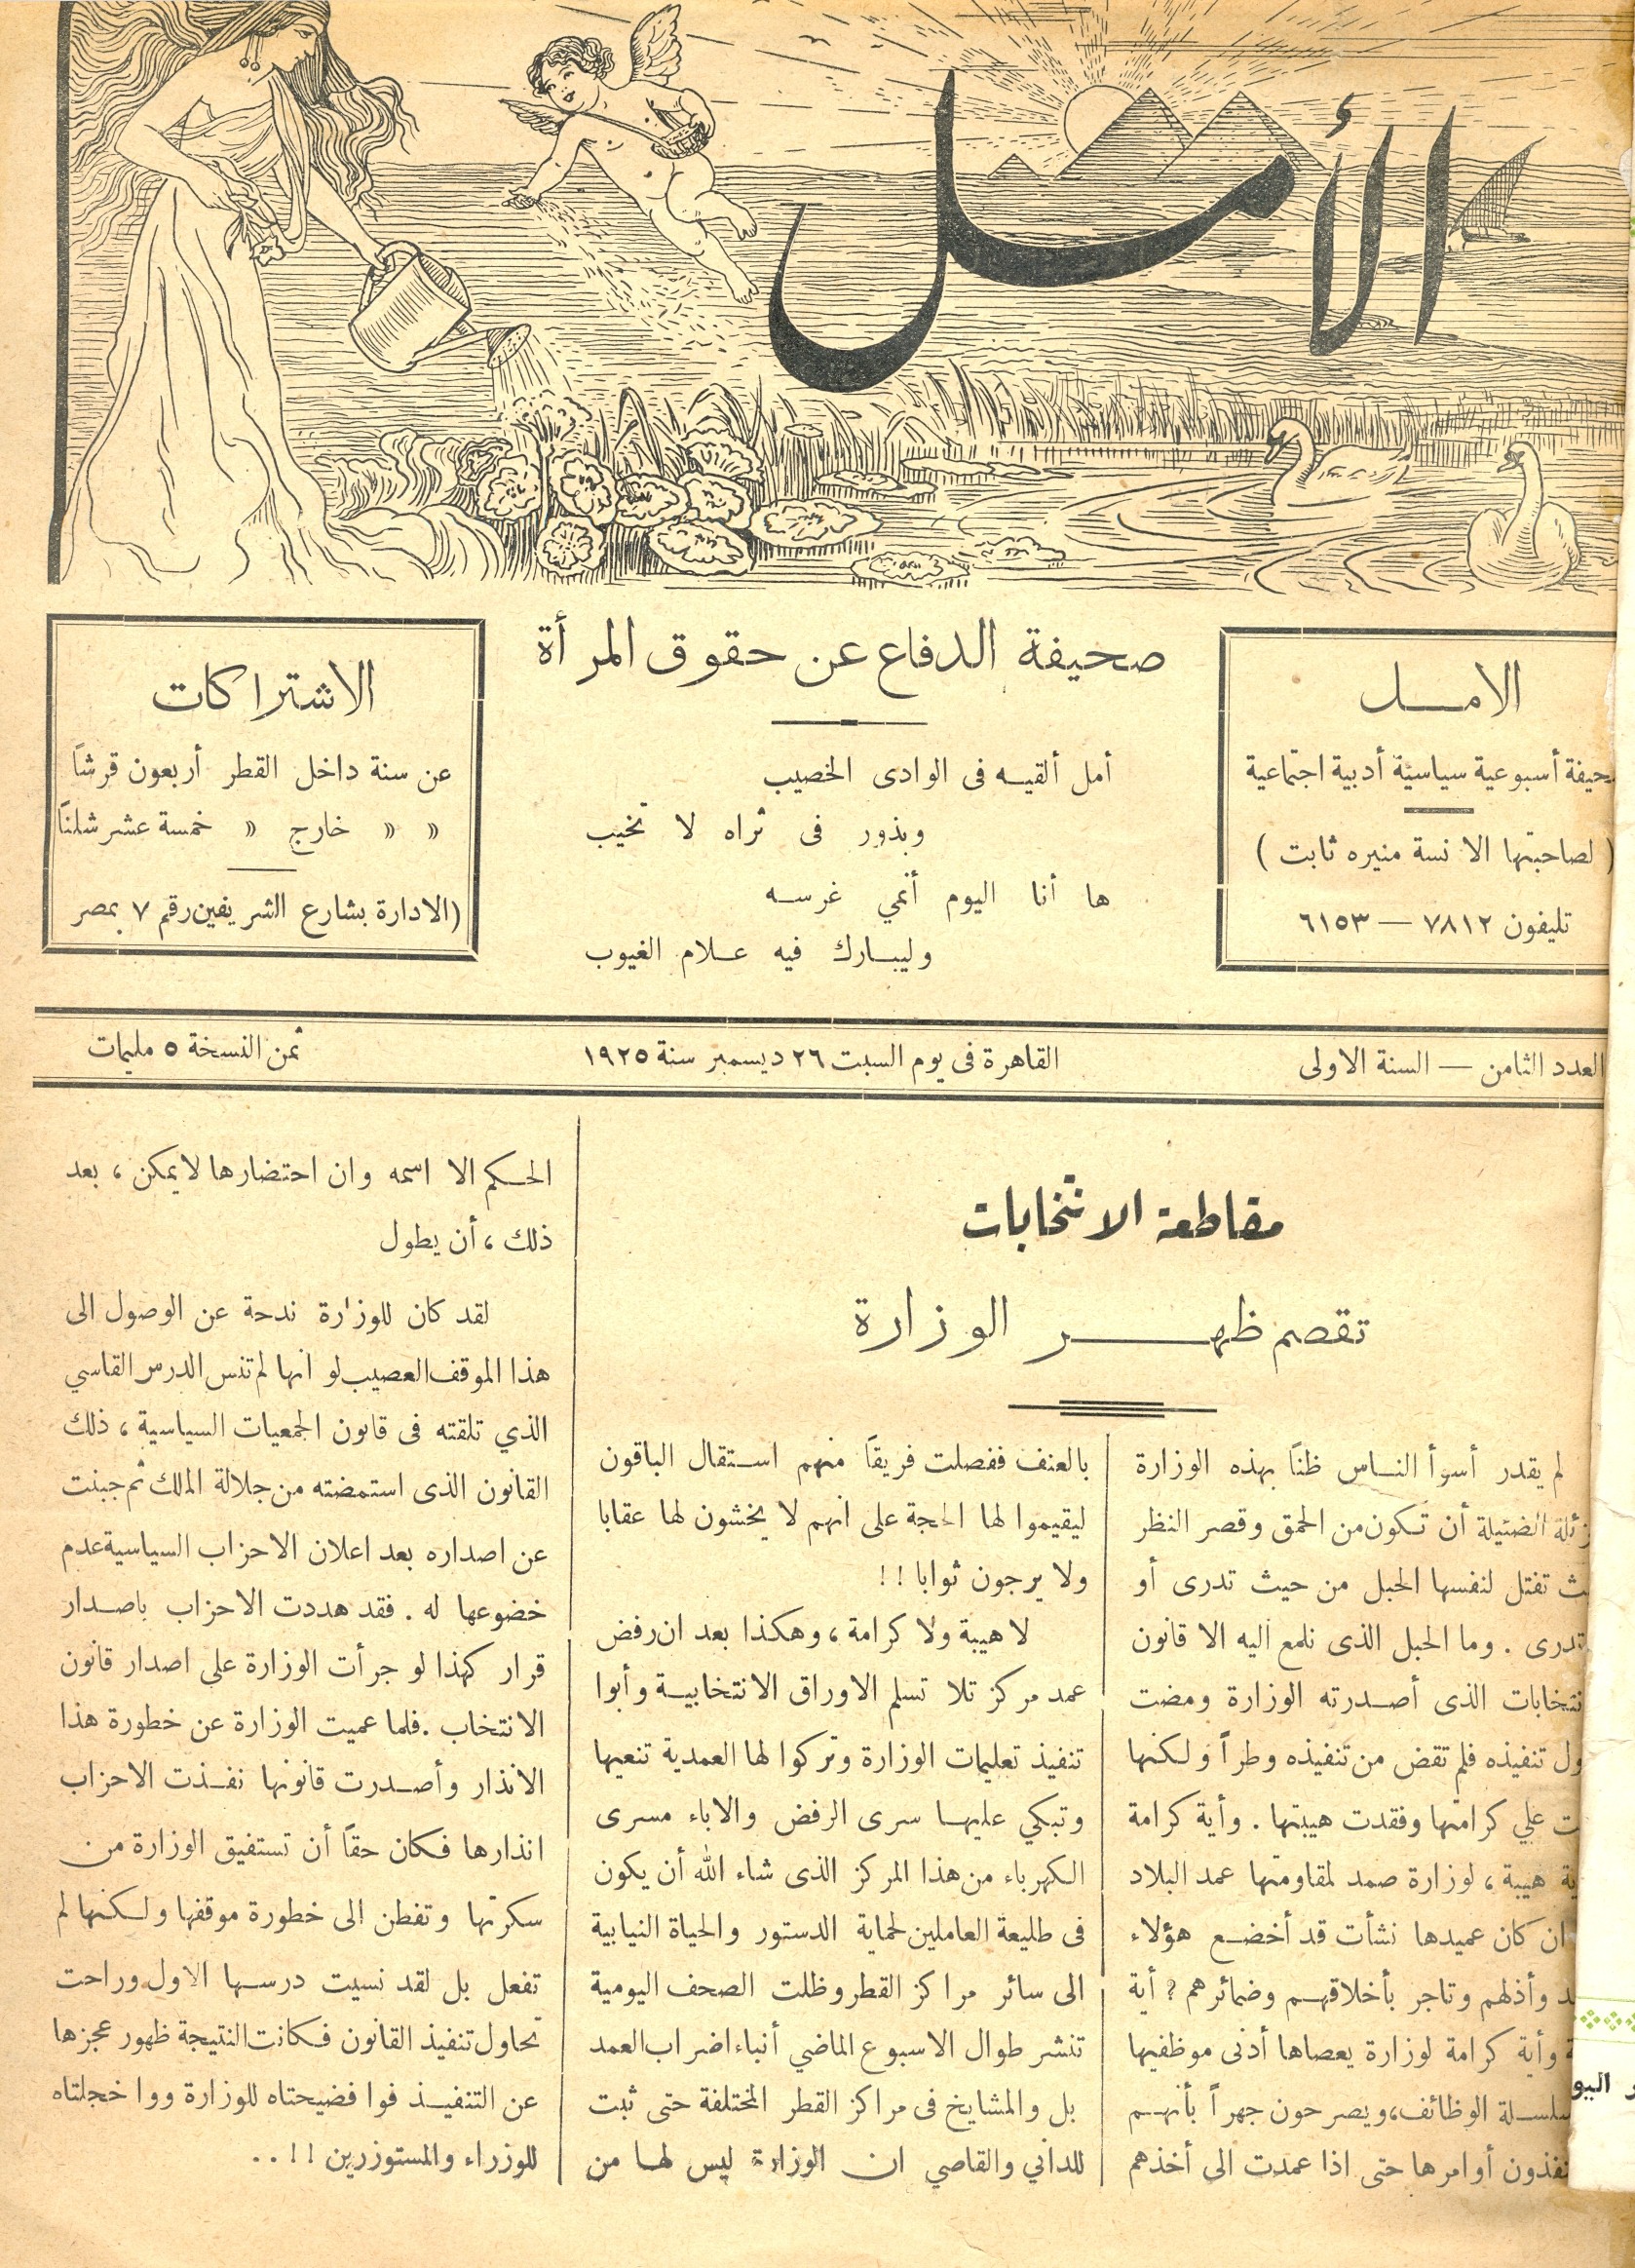 الأمل
صحيفة الدفاع عن حقوق المرأة
الامل
صحيفة أسبوعية سياسية أدبية اجتماعية
( لصاحبتها الآنسة منيره ثابت )
تليفون ٧٨١٢ — ٦١٥٣
أمل ألقيه فى الوادى الخصيب
وبذور فى ثراه لا تخيب
ها أنا اليوم أنمي غرسه
وليبارك فيه علام الغيوب
الاشتراكات
عن سنة داخل القطر أربعون قرشًا
» » خارج » خمسة عشر شلنًا
(الادارة بشارع الشريفين رقم ٧ بمصر
العدد الثامن — السنة الاولى
القاهرة فى يوم السبت ٢٦ ديسمبر سنة ١٩٢٥
ثمن النسخة ٥ مليمات
مقاطعة الانتخابات
تقصم ظهر الوزارة
لم يقدر أسوأ الناس ظنًا بهذه الوزارة
الضئيلة أن تكون من الحمق وقصر النظر
تفتل لنفسها الحبل من حيث تدرى أو
تدرى . وما الحبل الذى نلمع اليه الا قانون
نتخابات الذى أصدرته الوزارة ومضت
ول تنفيذه فلم تقض من تنفيذه وطراً ولكنها
ت علي كرامتها وفقدت هيبتها . وأية كرامة
ية هيبة ، لوزارة صمد لمقاومتها عمد البلاد
ان كان عميدها نشأت قد أخضع هؤلاء
د وأذلهم وتاجر بأخلاقهم وضمائرهم ؟ أية
وأية كرامة لوزارة يعصاها أدنى موظفيها
سلسلة الوظائف، ويصرحون جهراً بأنهم
نفذون أوامرها حتى اذا عمدت الى أخذهم
بالعنف ففصلت فريقًا منهم استقال الباقون
ليقيموا لها الحجة على انهم لا يخشون لها عقابا
ولا يرجون ثوابا ! !
لا هيبة ولا كرامة ، وهكذا بعد ان رفض
عمد مركز تلا تسلم الاوراق الانتخابية وأبوا
تنفيذ تعليمات الوزارة وتركوا لها العمدية تنعيها
وتبكي عليها سرى الرفض والاباء مسرى
الكهرباء من هذا المركز الذى شاء الله أن يكون
فى طليعة العاملين لحماية الدستور والحياة النيابية
الى سائر مراكز القطر وظلت الصحف اليومية
تنشر طوال الاسبوع الماضي أنباء اضراب العمد
بل والمشايخ فى مراكز القطر المختلفة حتى ثبت
للداني والقاصي ان الوزارة ليس لها من
الحكم الا اسمه وان احتضارها لا يمكن ، بعد
ذلك ، أن يطول
لقد كان للوزارة ندحة عن الوصول الى
هذا الموقف العصيب لو انها لم تنس الدرس القاسي
الذي تلقته فى قانون الجمعيات السياسية ، ذلك
القانون الذى استمضته من جلالة الملك ثم جبنت
عن اصداره بعد اعلان الاحزاب السياسية عدم
خضوعها له . فقد هددت الاحزاب باصدار
قرار كهذا لو جرأت الوزارة على اصدار قانون
الانتخاب . فلما عميت الوزارة عن خطورة هذا
الانذار وأصدرت قانونها نفذت الاحزاب
انذارها فكان حقًا أن تستفيق الوزارة من
سكرتها وتفطن الى خطورة موقفها ولكنها لم
تفعل بل لقد نسيت درسها الاول وراحت
تحاول تنفيذ القانون فكانت النتيجة ظهور عجزها
عن التنفيذ فوا فضيحتاه للوزارة ووا خجلتاه
للوزراء والمستوزرين ! ! . .